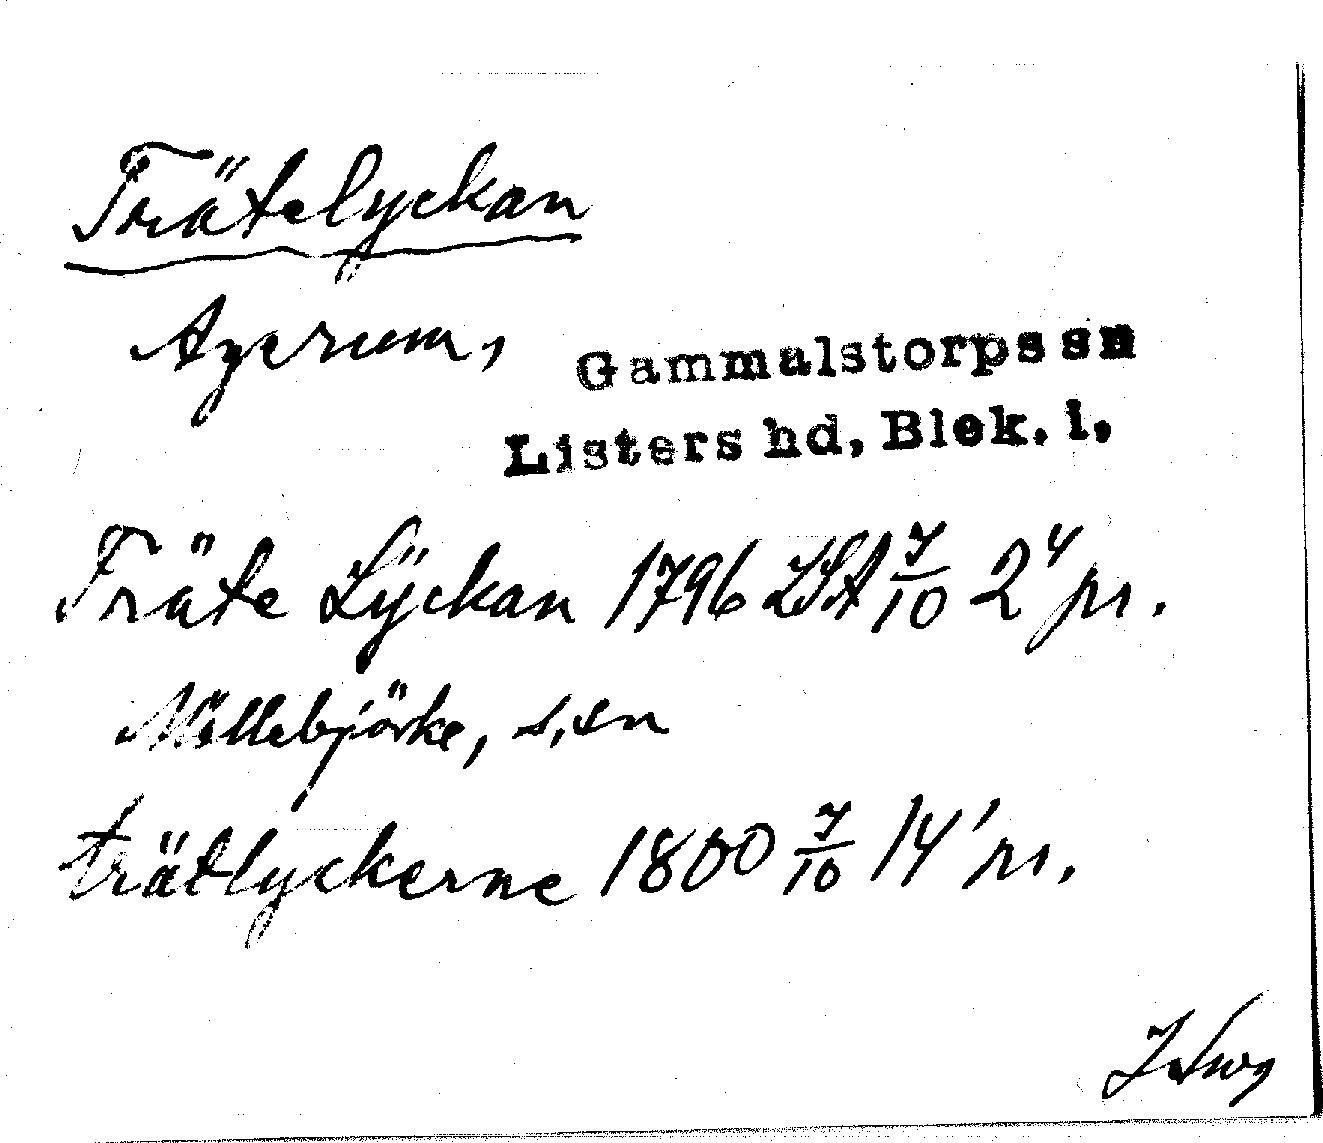 Trätelyckan
Agerum,
Gammalstorps sn
Listers hd, Blek. l,
Träte Lÿckan 1796 LSA 7/10 24 pr.
Möllebjörke, s.sn
trätlyckerne 1800 7/10 14' pr.